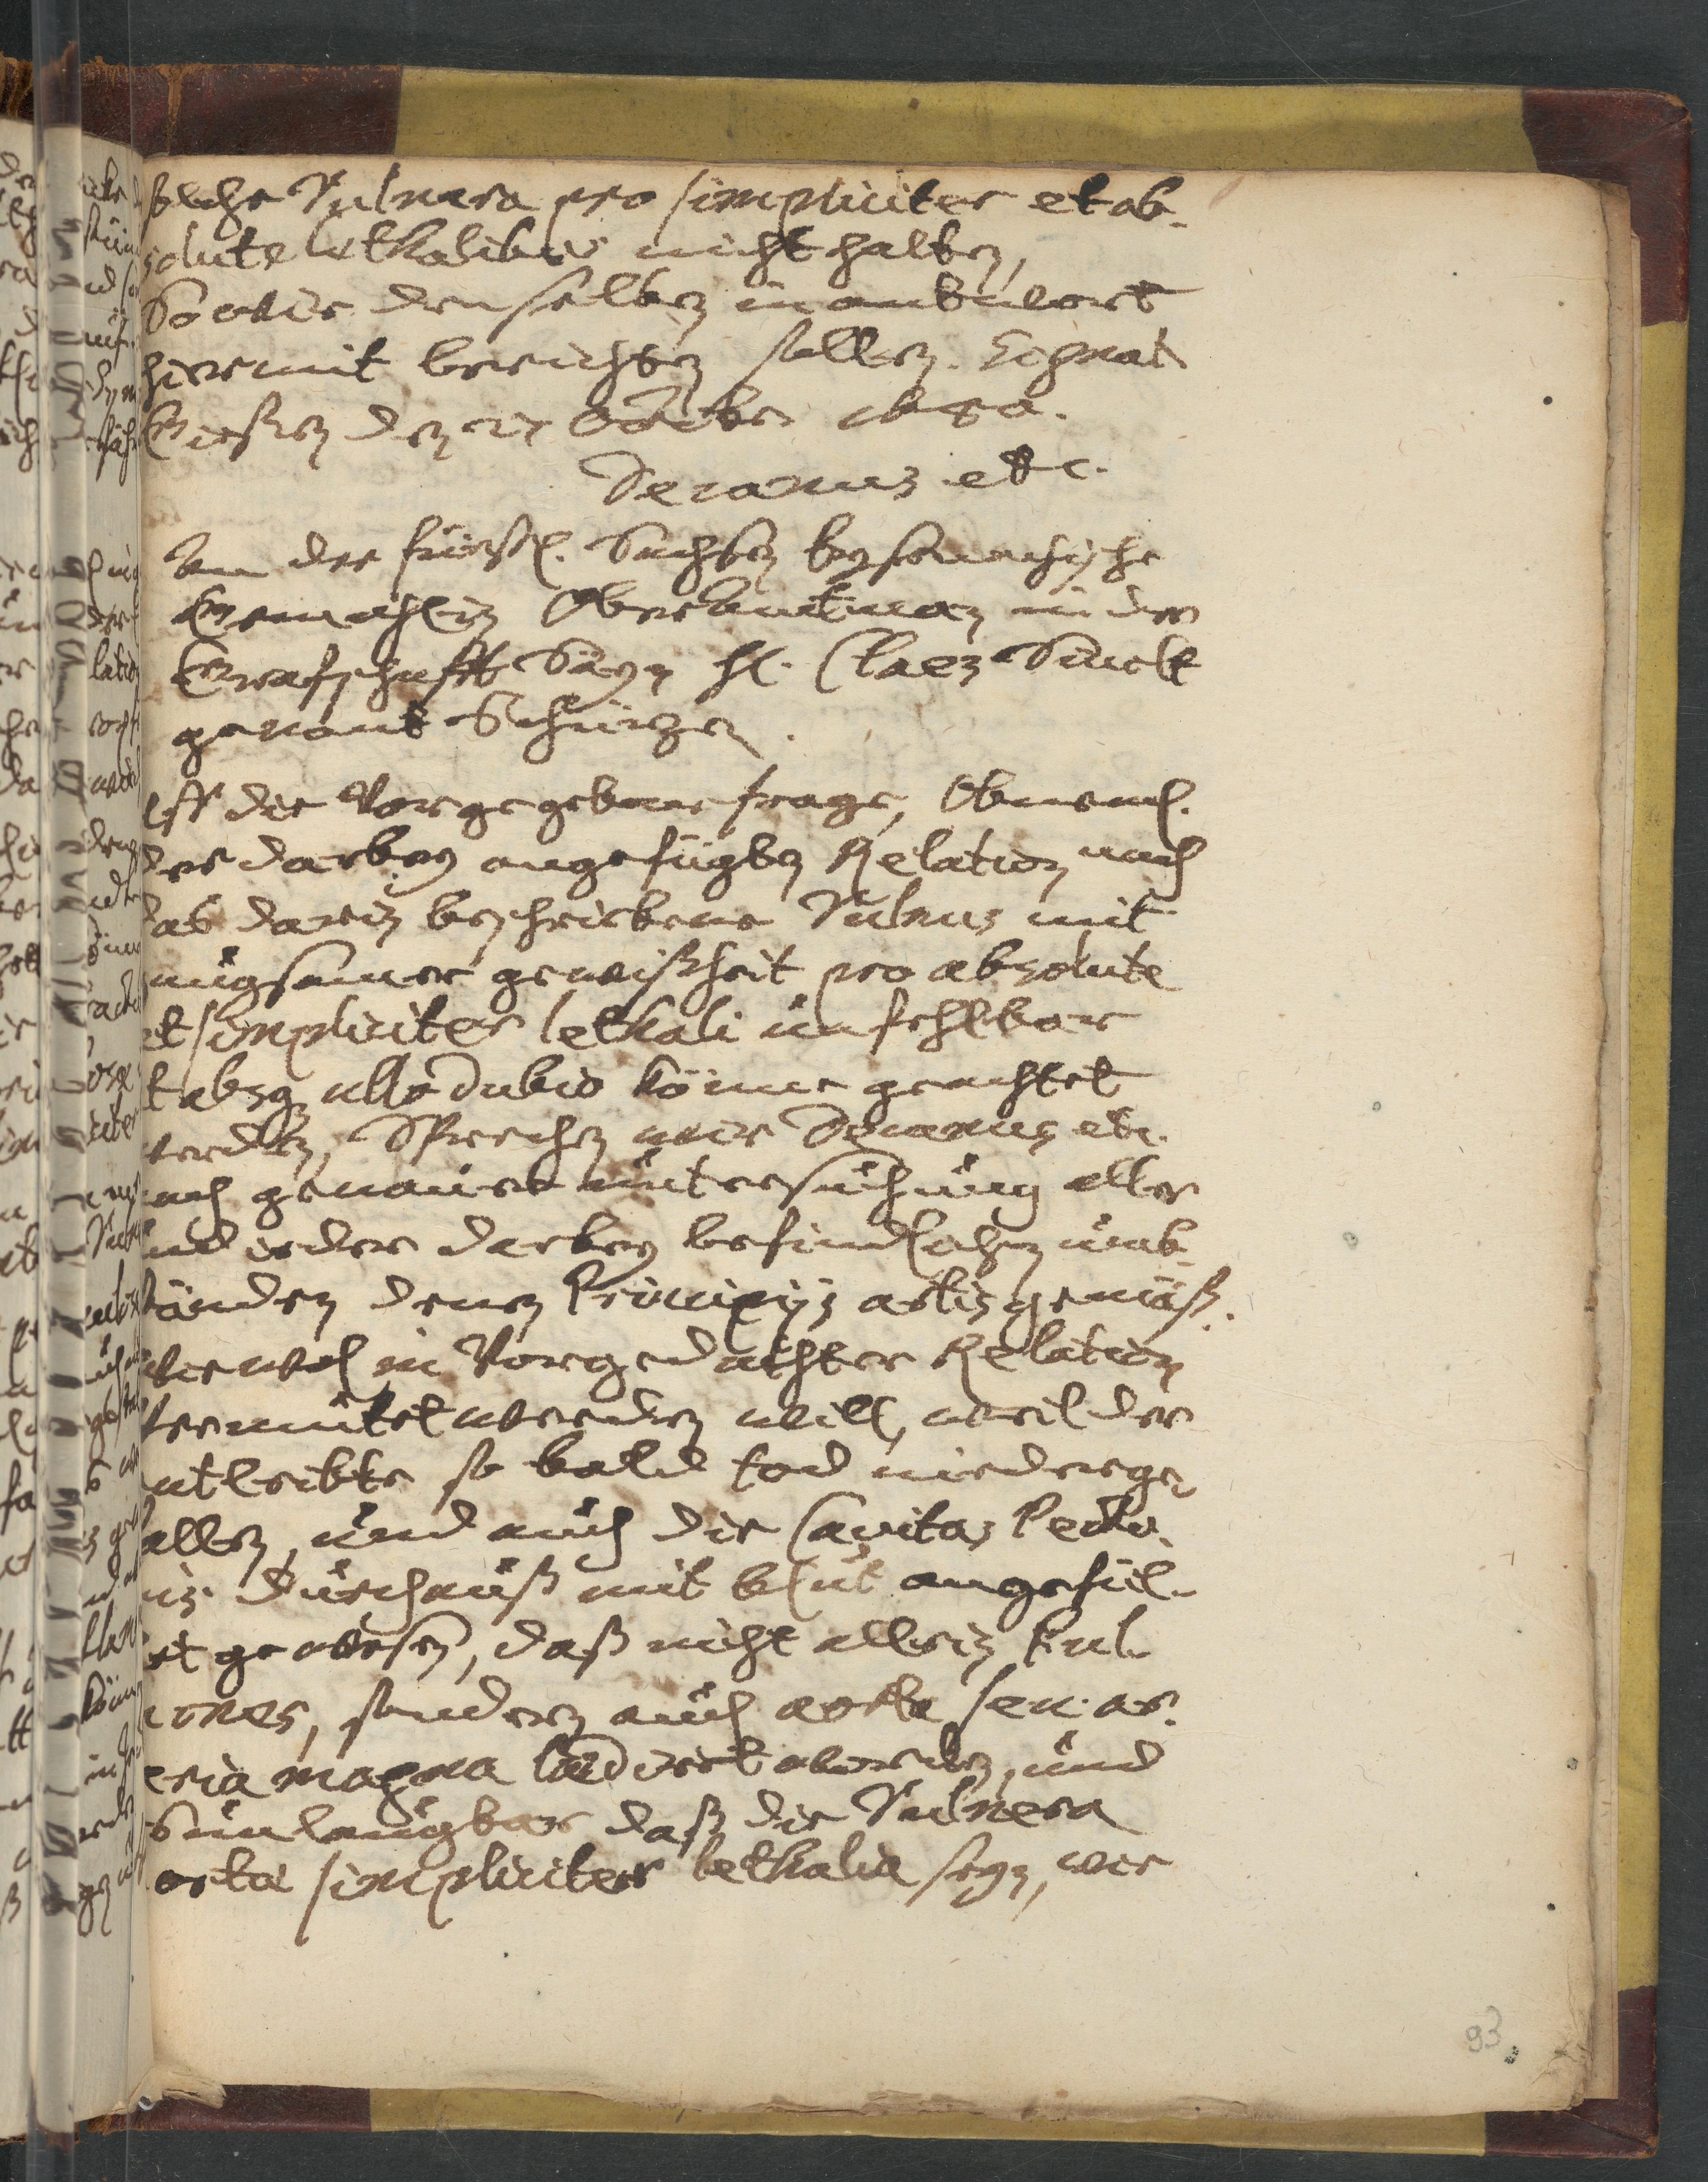 solche Vulnera pro simpliciter et ab-
solute lethalibus nicht halten,
So wir denselben in antwort
hiermit berichten sollen. Signat
Gießen den 27 Octobr
Decanus etc.
An der fürstl. Sachsen Eysenachische
Gemahlin Oberambtman in der
Graffschafft Sayn H. Claes
genant Schützen.
Uff die Vorgegebene frage, Ob neml.
der darbey angefügten Relation nach
das darin beschriebene Vulnus mit
nugsamer gewißheit pro absolute
et simpliciter lethali unfehlbar
et absq ullo dubio könne geachtet
werden, Sprechen wir Decanus etc.
nach genauer untersuchung aller
und ieder darbey befindlichen umb-
ständen denen Principijs artis gemäß.
wiewol in Vorgedachter Relation
vermutet werden will, weil der
entleibte so bald tod niederge-
fallen, und auch die Cavitas Pecto-
ris durchauß mit blut angefül-
let gewesen, daß nicht allein Pul-
mones, sondern auch aorta seu ar-
teria magna laedirt worden, und
unlaugbar daß die Vulnera
aorta simpliciter lethalia seyn, wir
93